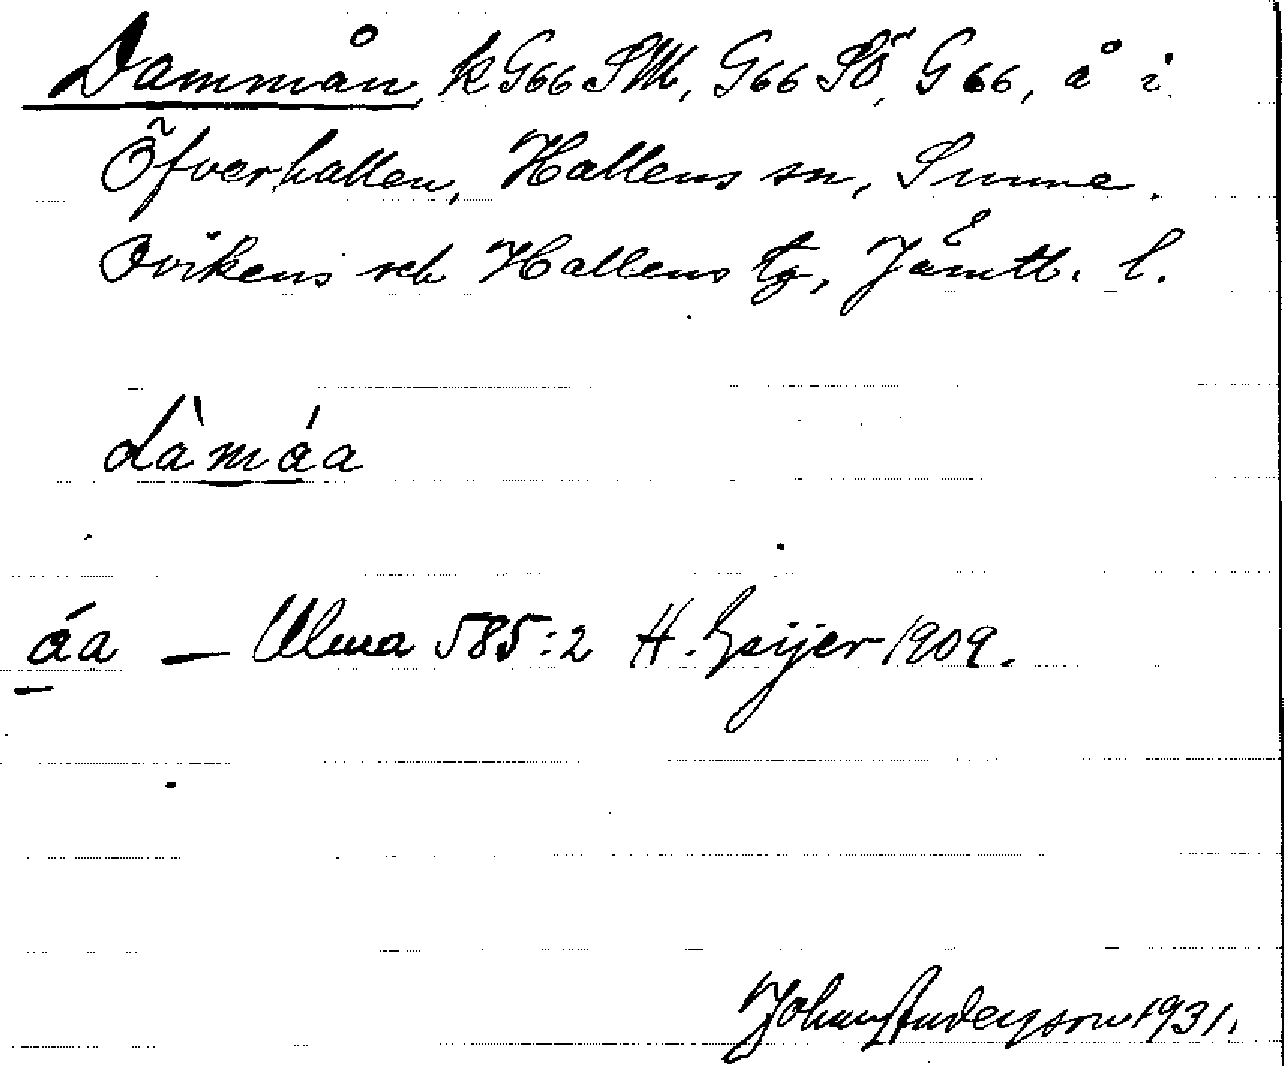 Dammån, k G66 SW, G66 SÖ, G 66, å i
Öfverhallen, Hallens sn, Sunne,
Ovikens och Hallens tg, Jämtl. l.
dàmáa
áa — Ulma 585:2 H. Geijer 1909.
Johan Anderson 1931.